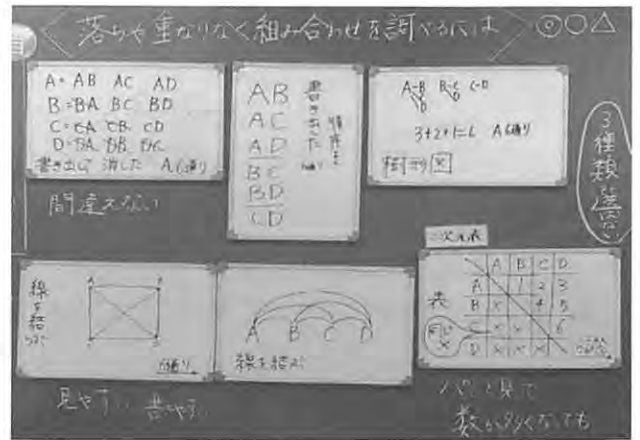 落ちや重なりなく組み合わせを調べるには
◎○△
A= AB AC AD
B=BA BC BD
C=CA CB CD
D=DA DB DC
書き出して 消した A6通り
間違えない
AB
AC
AD
BC
BD
CD
書き出した
6通り
A-B B-C C-D
3+2+1=6 A6通り
樹形図
3種類
線を結ぶ
A
B
6通り
見やすい 書やすい
A B C D
線を結ぶ
二次元表
表
A B C D
A 1 2 3
B × 4 5
C × × 6
D × × ×
同じ
×
パッと見て
数が多くなっても